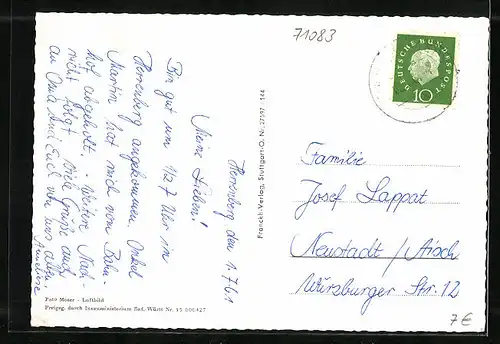 71083
DEUTSCHE BUNDESPOST
10
Herrenberg den 1.7.61
Meine Lieben!
Bin gut um 1/27 Uhr in
Herrenberg angekommen. Onkel
Martin hat mich vom Bahn-
hof abgeholt. - Weitere Nach-
richt folgt. Viele Grüße auch
an Oma und Euch von uns allen.
Anneliese
Franckh-Verlag, Stuttgart-O, Nr. 27597 144
Familie
Josef Lappat
Neustadt/Aisch
Würzburger Str. 12
Foto Moser - Luftbild
Freigeg. durch Innenministerium Bad. Württ Nr.
7€